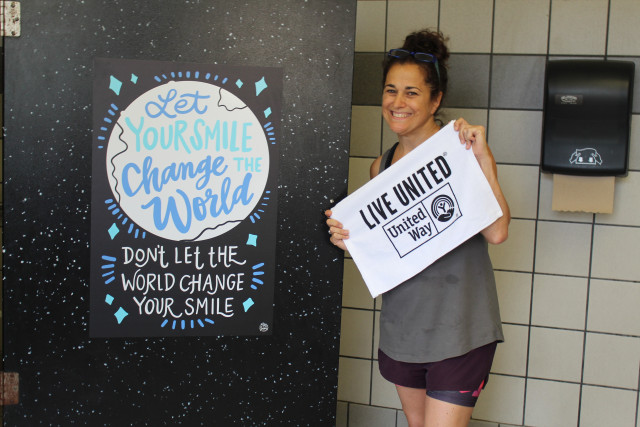 Let
YOUR SMILE
Change THE
World
DON'T LET THE
WORLD CHANGE
YOUR SMILE
LIVE UNITED
United
Way